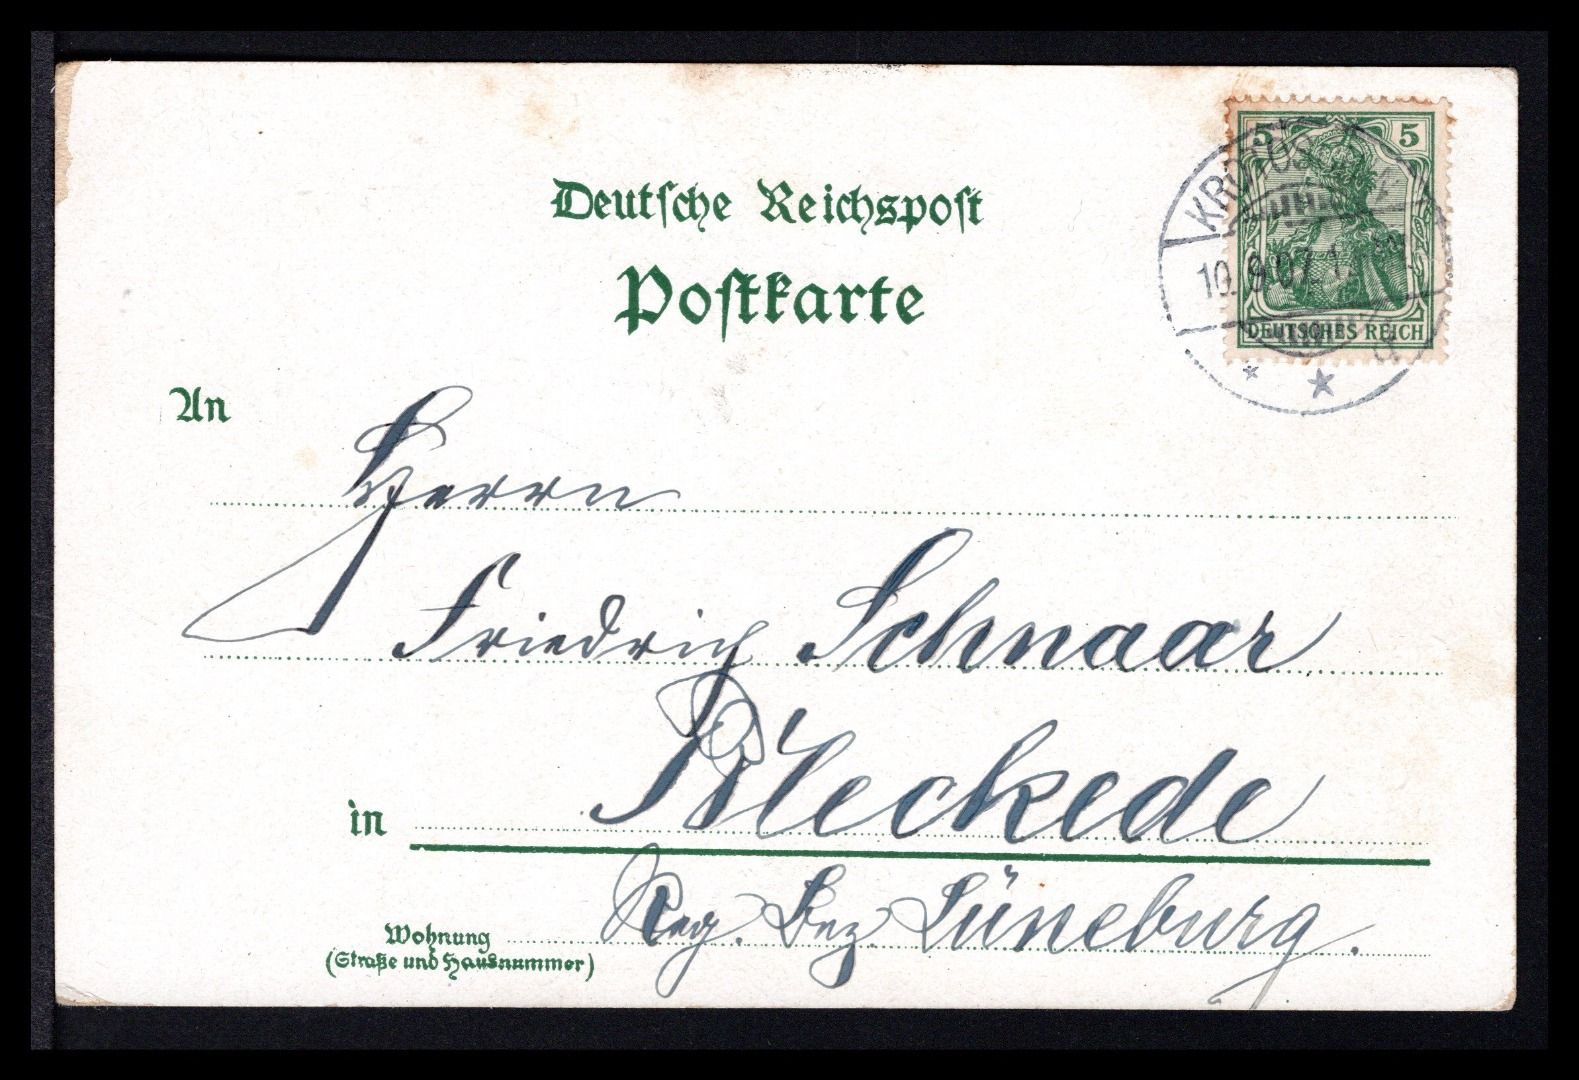 Deutsche Reichspost
Postkarte
5 5
DEUTSCHES REICH
10.9.07
An
Herrn
Friedrich Schnaar
in Bleckede
Reg. Bez. Lüneburg.
Wohnung
(Straße und Hausnummer)